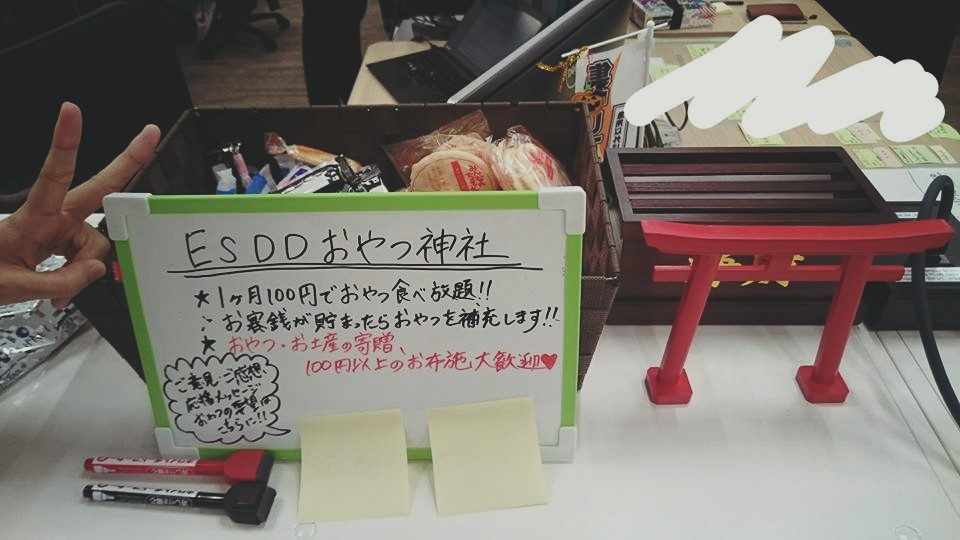 ESDDおやつ神社
★1ヶ月100円でおやつ食べ放題!!
お賽銭が貯まったらおやつを補充します!!
★おやつ・お土産の寄贈、
100円以上のお布施大歓迎♥
ご意見・ご感想
応援メッセージ
おやつの要望は
こちらに!!